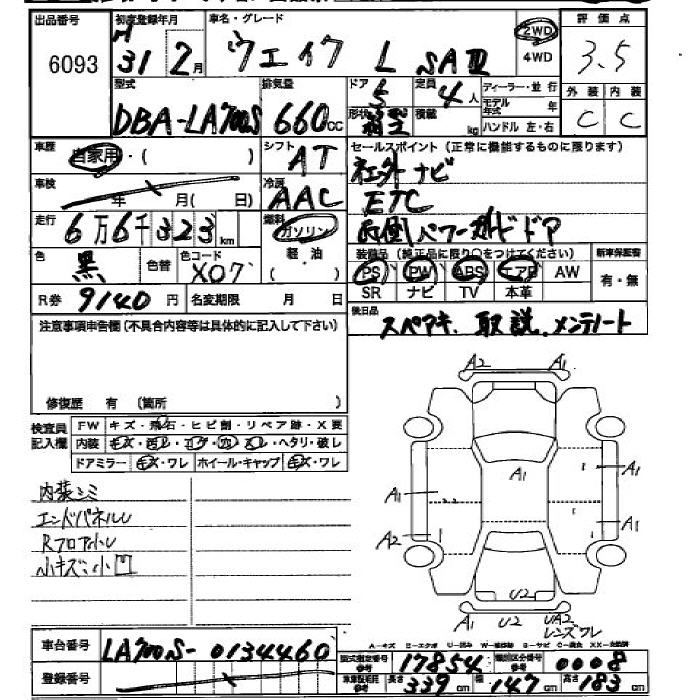 出品番号 初度登録年月 車名・グレード 2WD 4WD 評価点
6093 H 31 2月 ウェイク L SAⅢ 3.5
型式 排気量 ドア 定員 ディーラー・並行 外装 内装
DBA-LA700S 660cc 5 4人 モデル年式 年 C C
形状 箱型 積載 kg ハンドル 左・右
車歴 自家用・( ) シフト AT セールスポイント(正常に機能するものに限ります)
車検 年 月( 日) 冷房 AAC 社外ナビ
走行 6万6千323km 燃料 ガソリン ETC
軽油 両側パワースライドドア
色 黒 色替 色コード X07 装備品(純正品に限り○をつけてください) 新車保証書
PS PW ABS エアB AW 有・無
R券 9140円 名変期限 月 日 SR ナビ TV 本革
注意事項申告欄(不具合内容等は具体的に記入して下さい) 後日品 スペアキ、取説、メンテノート
修復歴 有 (箇所 )
検査員記入欄 FW キズ・飛石・ヒビ割・リペア跡・X要
内装 キズ・汚レ・コゲ・穴・スレ・ヘタリ・破レ
ドアミラー キズ・ワレ ホイール・キャップ キズ・ワレ
内装シミ
エンドパネルU
Rフロア小U
小キズ小凹
A2 A1
A1
A1 A1
A2 A1
U2
A1 U2 UA2
レンズワレ
A-キズ E-エクボ U-凹み W-補修跡 S-サビ C-腐食 XX-交換済
車台番号 LA700S-0134460
登録番号
型式指定番号 参考 17854 類別区分番号 参考 0008
車検証記載 参考 長さ 339cm 幅 147cm 高さ 183cm